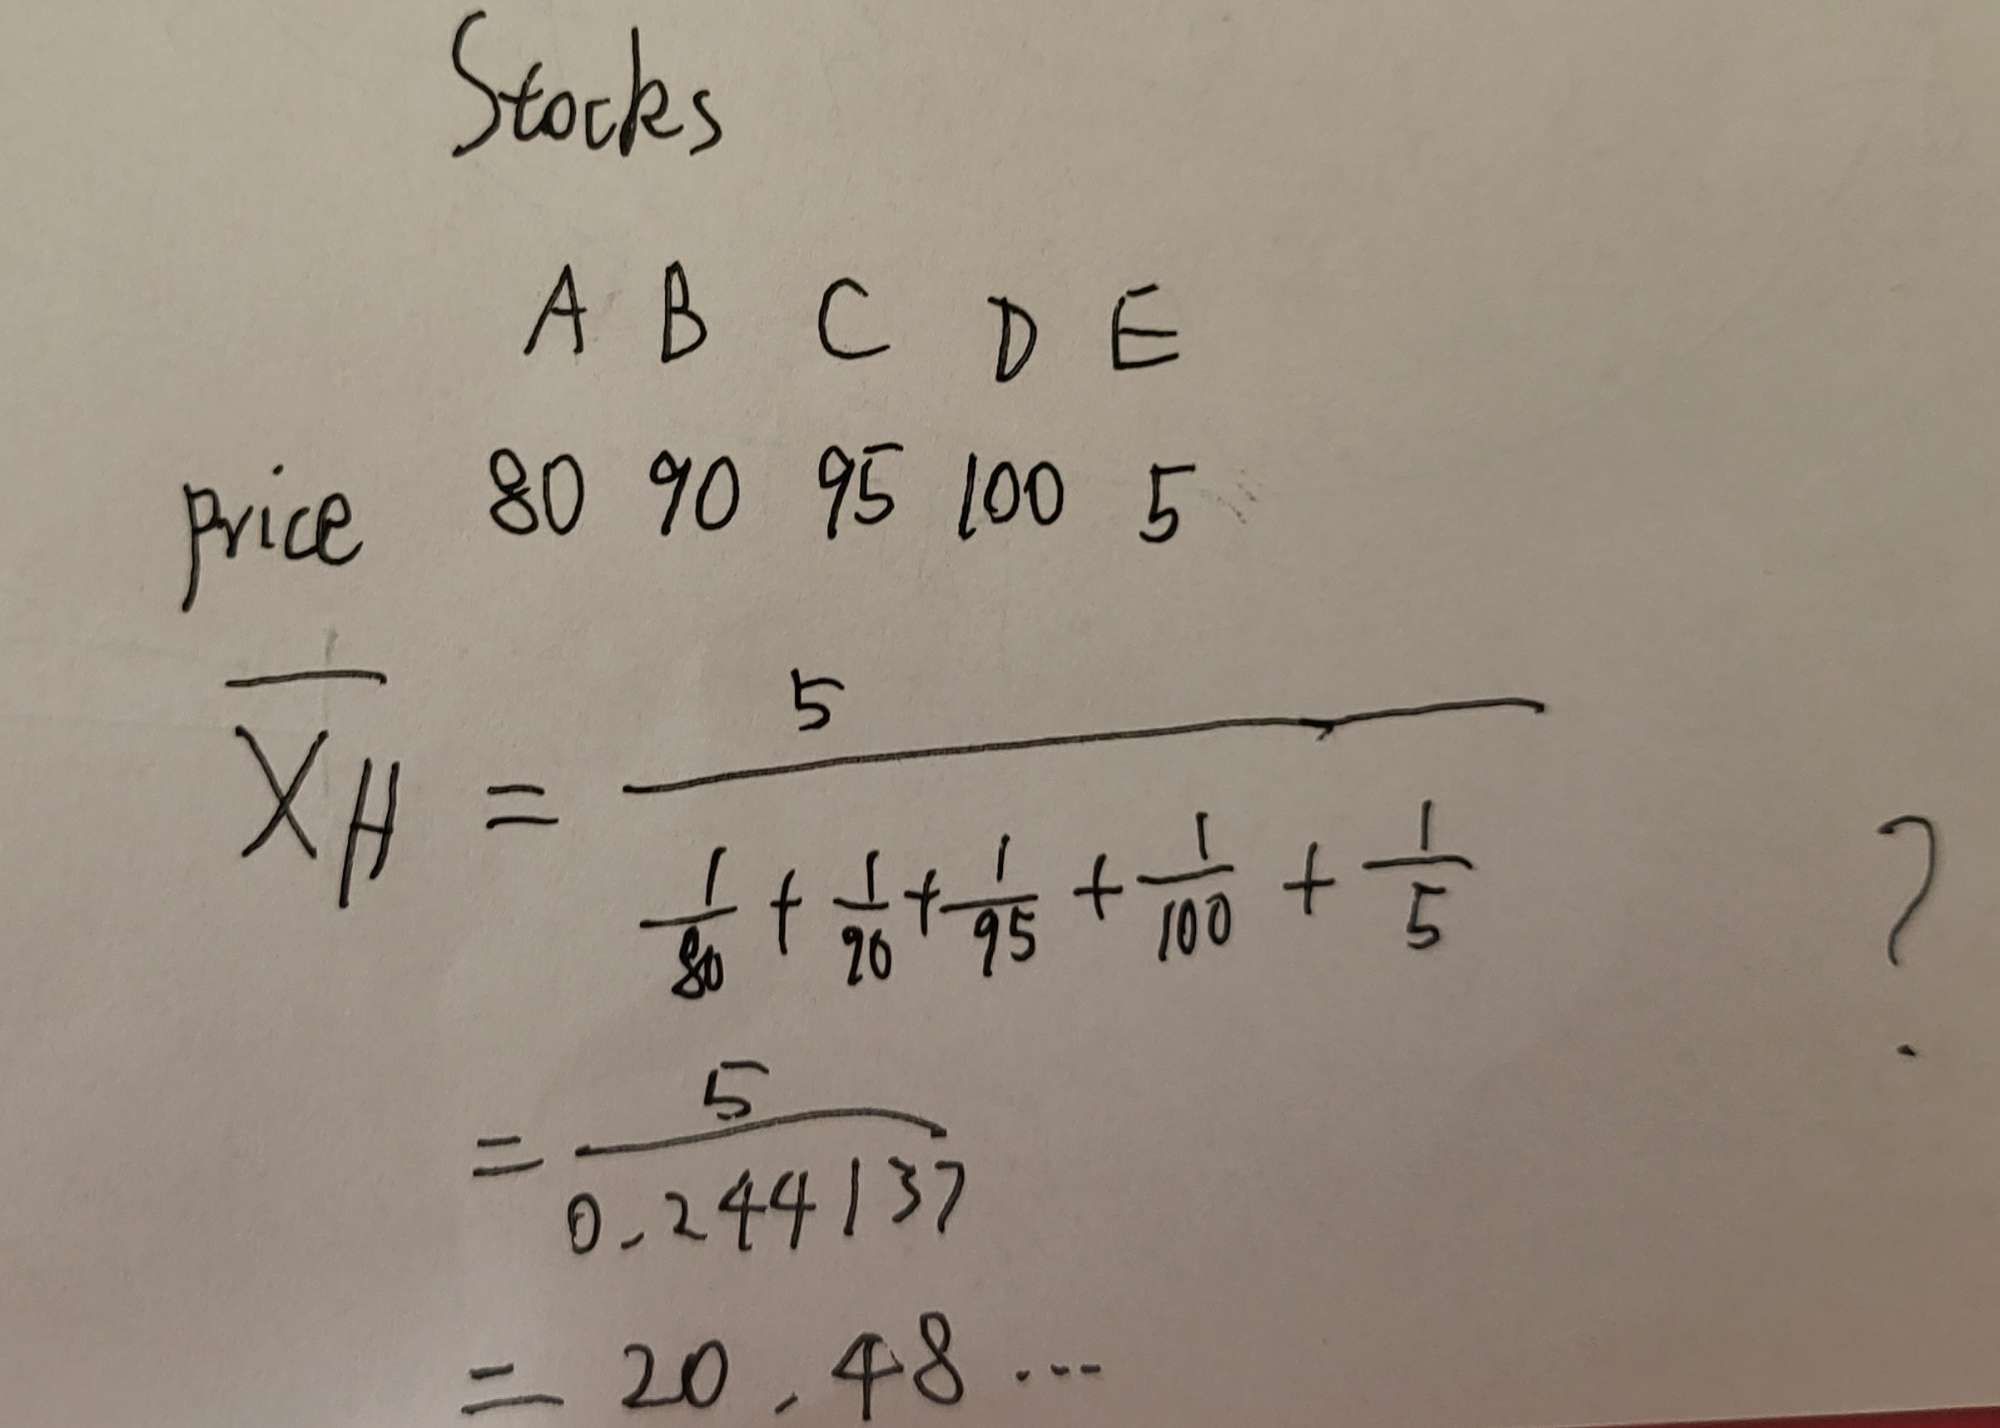 Stocks
A B C D E
price 80 90 95 100 5
X̄H = 5 / (1/80 + 1/90 + 1/95 + 1/100 + 1/5) ?
= 5 / 0.244137
= 20.48...